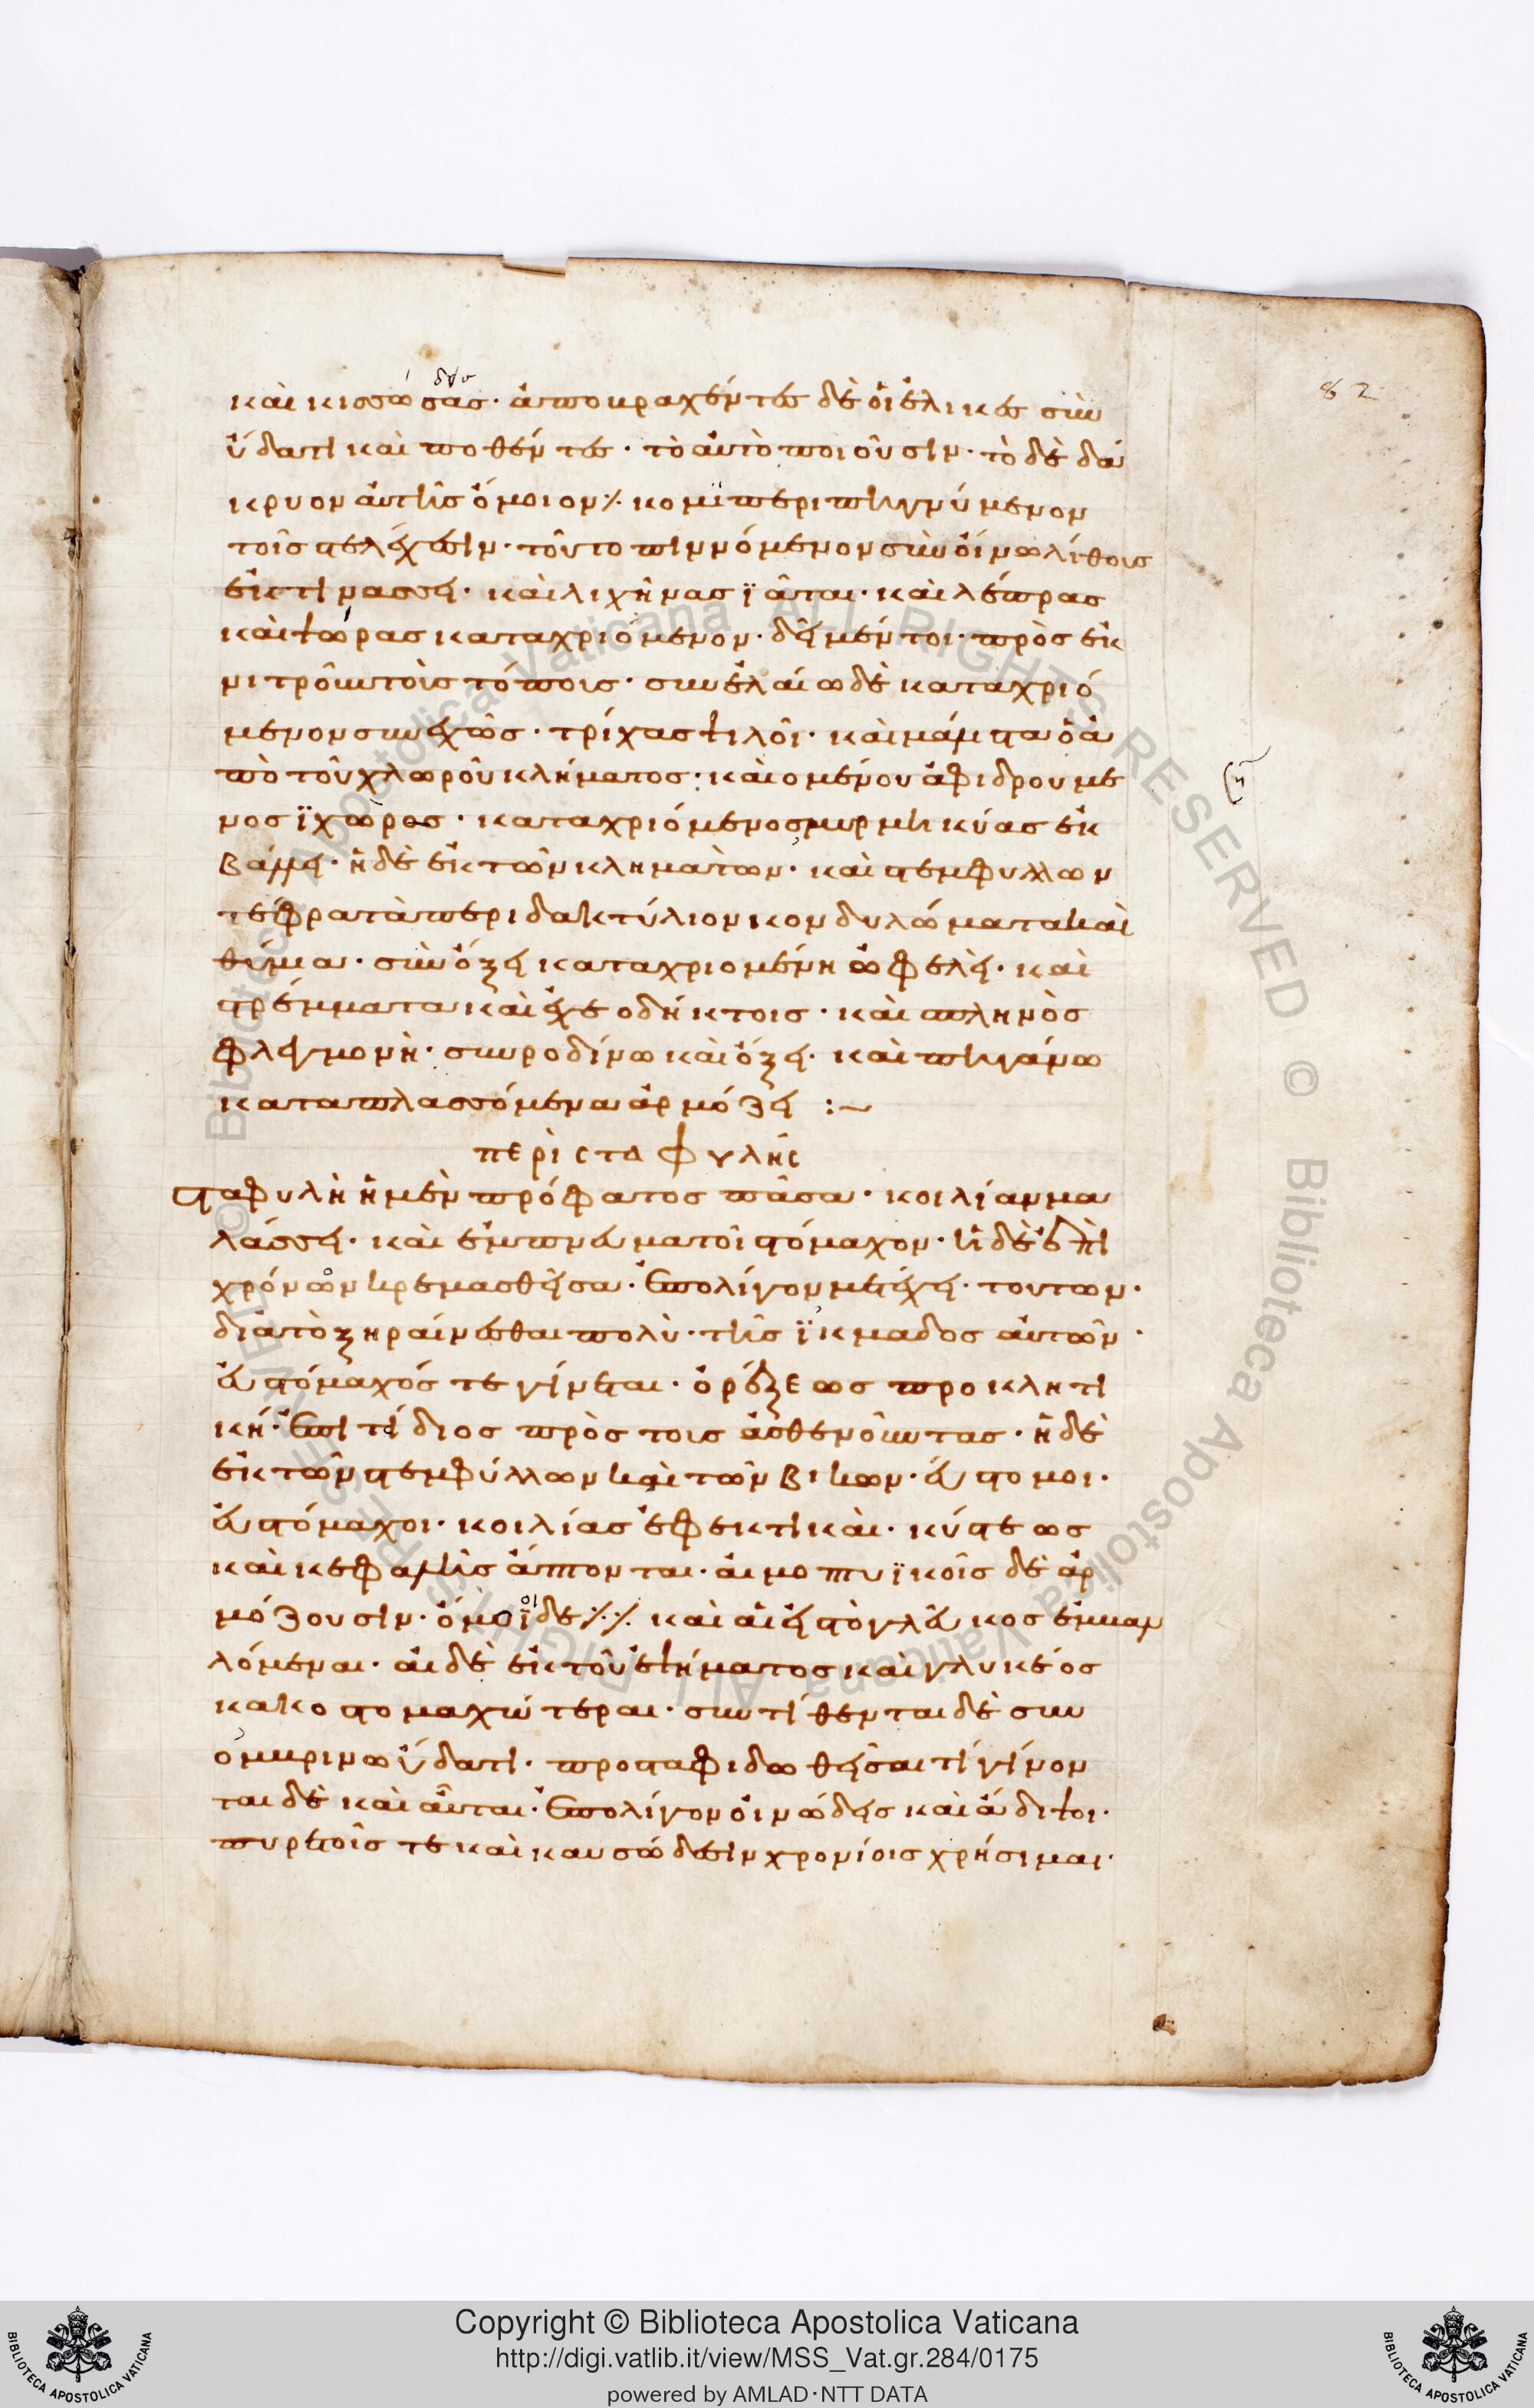 82
δου
καὶ κισσώσας· ἀποκραχέντες δὲ οἱ ἕλικες σὺν
ὕδατι καὶ ποθέντες· τὸ αὐτὸ ποιοῦσιν· τὸ δὲ δά
κρυον αὐτῆς ὅμοιον ⁒ κομι περιπηγνύμενον
τοῖς στελέχεσιν· τοῦτο πιννόμενον σὺν οἴνω λίθοις
ἐκτινασσει· καὶ λιχῆνας ϊᾶται· καὶ λέπρας
καὶ ψώρας καταχριόμενον· δεῖ μέν τοι· πρὸς ἐκ
νιτροῦν τοὶς τόποις· σὺν ἐλαίω δὲ καταχριό
μενον συνεχῶς· τρίχας ψιλοῖ· καὶ μάλιστα ὁ ἀ
πὸ τοῦ χλωροῦ κλήματος· καὶ ομένου ἀφιδρουμε
νος ϊχὼρος· καταχριόμενος μυρμηκύας ἐκ
βάλλει· ἡ δὲ ἐκ τῶν κληματων· καὶ στεμφυλλων
τέφρα τὰ περι δακτύλιον κονδυλώματα καὶ
θύμα· σὺν ὄξει καταχριομένη ὠφελεῖ· καὶ
στρέμματα καὶ ἐχεοδήκτοις· καὶ σπληνὸς
φλεγμονὴ· σὺν ροδίνω καὶ ὄξει· καὶ πηγάνω
καταπλασσόμενα ἁρμόζει :~
περὶ σταφυλῆς
σταφυλὴ ἡ μὲν πρόσφατος πᾶσα· κοιλίαν μα
λάσσει· καὶ ἐμπνευματοῖ στόμαχον· ἡ δὲ ἐπὶ
χρόνων κρεμασθεῖσα· ἐπολίγον μετέχει· τουτων·
διὰ τὸ ξηραίνεσθαι πολὺ· τῆς ϊκμαδος αὐτῶν·
εὐστόμαχός τε γίνεται· ὀρέξεως προκλητι
κή· ἐπιτίδιος πρὸς τους ἀσθενοῦντας· ἡ δὲ
ἐκ τῶν στεμφύλλων καὶ τῶν βικων· εὔστομοι·
εὐστόμαχοι· κοιλίας ἐφεκτικαὶ· κύστεως
καὶ κεφαλῆς ἅπτονται· αἱμοπτυϊκοῖς δὲ ἁρ
μόζουσιν· ὅμοϊ δε ⁒⁒ καὶ αἱ εἰστὸ γλεῦκος ἐμμαλ
λόμεναι· αἱ δὲ ἐκ τοῦ ἑψήματος καὶ γλυκέος
κακοστομαχώτεραι· συντίθενται δὲ συν
ὀμμρινω ὕδατι· προσταφιδωθεῖσαι τί γίνον
ται δὲ καὶ αὗται· ἐπολίγον οἰνώδεις καὶ ἄδιψοι·
πυρετοῖς τε καὶ καυσώδεσιν χρονίοις χρήσιμαι·
Copyright © Biblioteca Apostolica Vaticana
http://digi.vatlib.it/view/MSS_Vat.gr.284/0175
powered by AMLAD·NTT DATA
BIBLIOTECA APOSTOLICA VATICANA
BIBLIOTECA APOSTOLICA VATICANA
© Biblioteca Apostolica Vaticana ALL RIGHTS RESERVED © Biblioteca Apostolica Vaticana ALL RIGHTS RESERVED